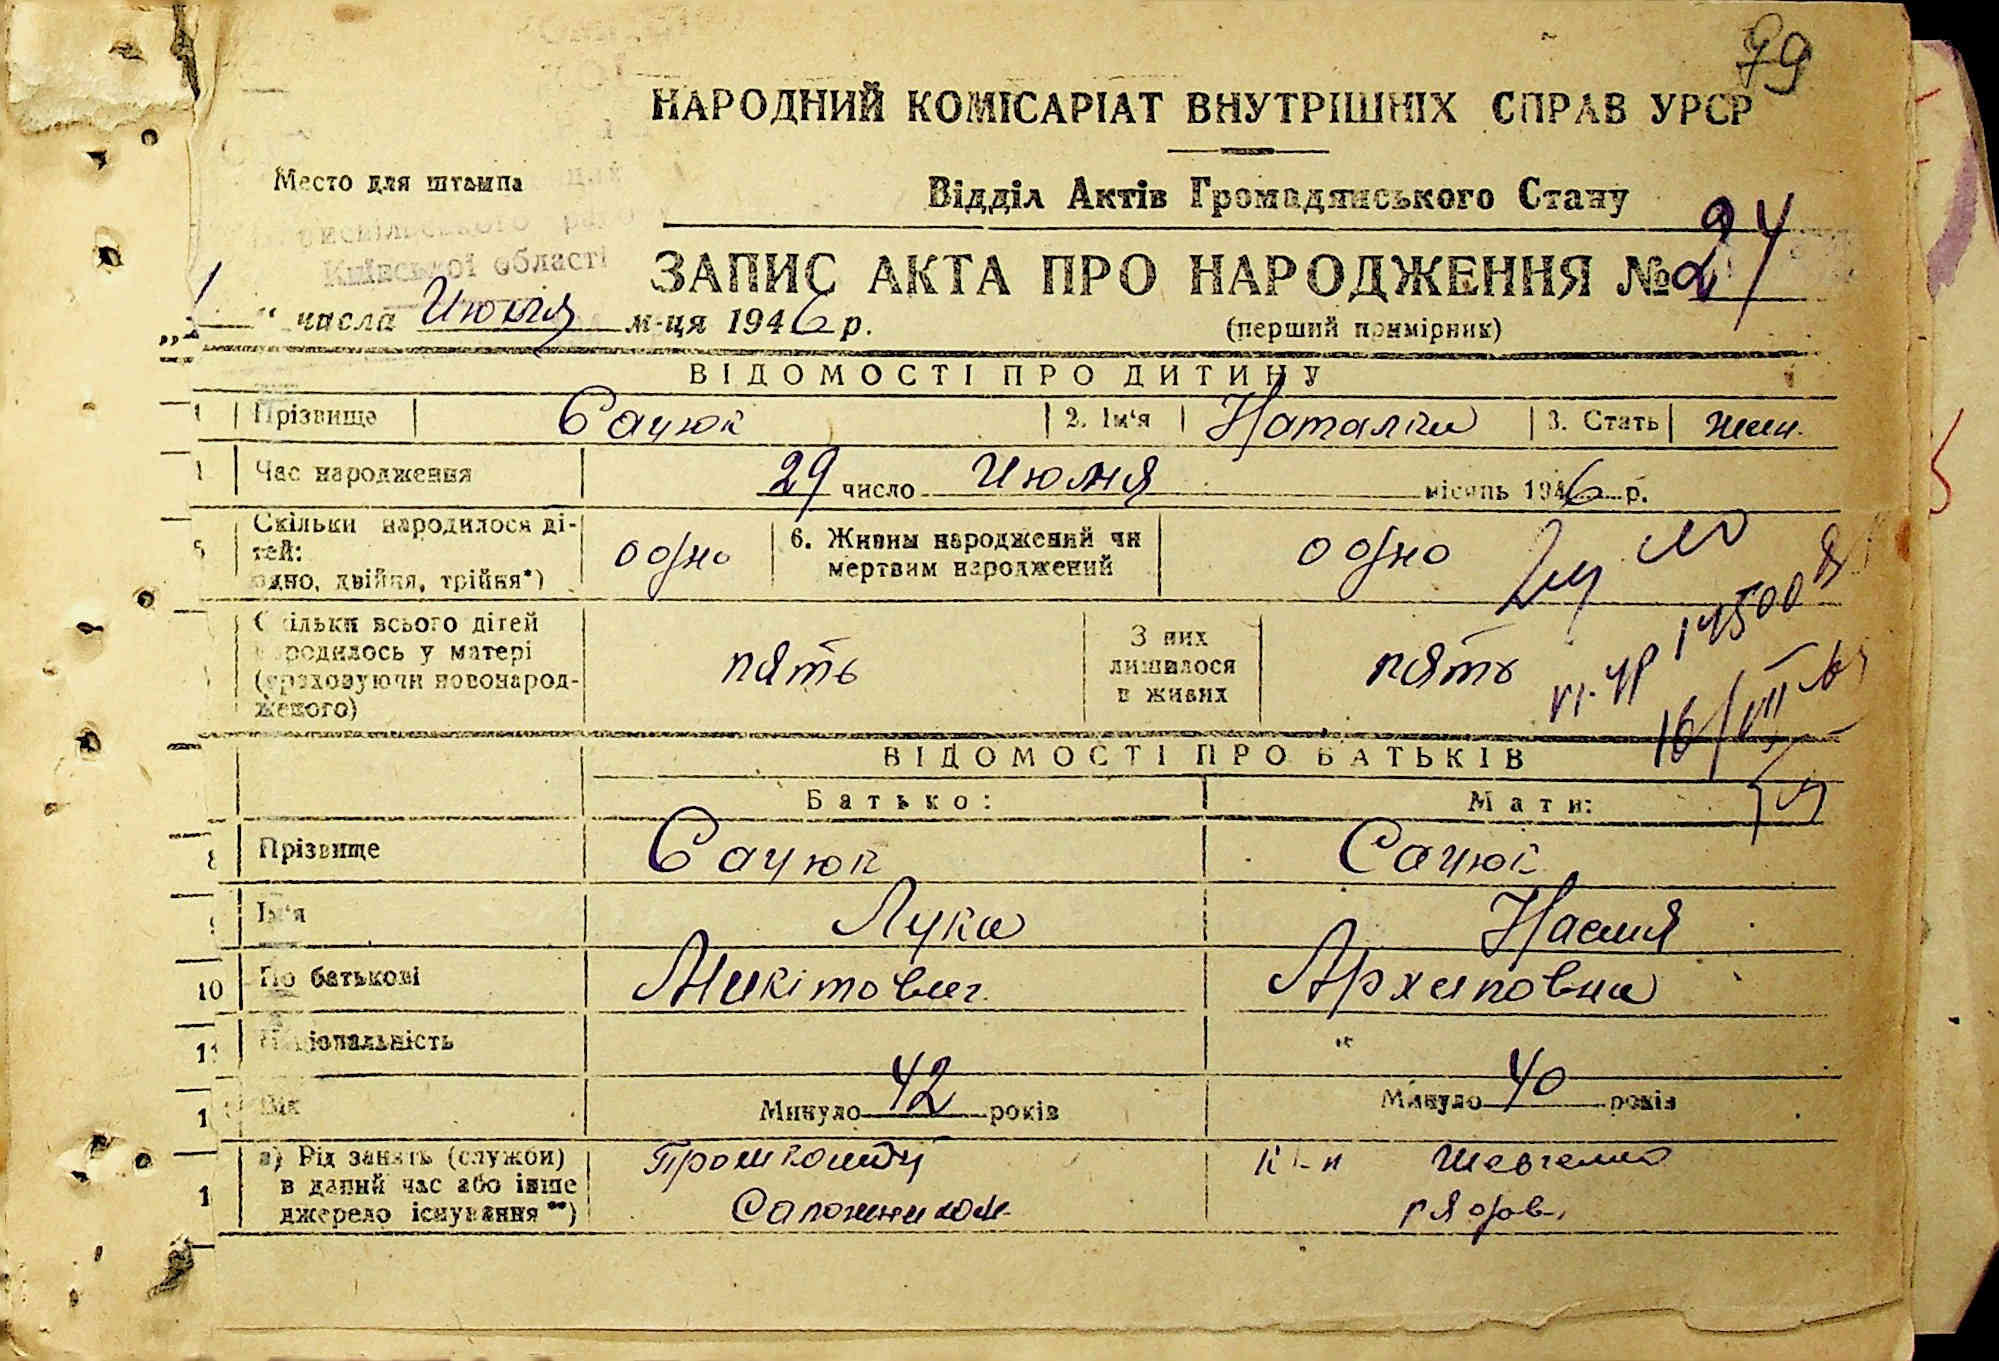 79
НАРОДНИЙ КОМІСАРІАТ ВНУТРІШНІХ СПРАВ УРСР
Место для штампа
Відділ Актів Громадянського Стану
Київської області
ЗАПИС АКТА ПРО НАРОДЖЕННЯ № 24
„1“ числа Июля м-ця 1946 р.
(перший примірник)
ВІДОМОСТІ ПРО ДИТИНУ
1 Прізвище Сацюк 2. Ім'я Наталія 3. Стать жен.
Час народження 29 число Июня місяць 1946 р.
5 Скільки народилося ді-
тей:
одно, двійня, трійня*) одно 6. Живим народжений чи
мертвим народжений одно
Скільки всього дітей
народилось у матері
(враховуючи новонарод-
женого) пять З них
лишилося
в живих пять
ВІДОМОСТІ ПРО БАТЬКІВ
Батько: Мати:
8 Прізвище Сацюк Сацюк
Ім'я Лука Настя
10 По батькові Микітович Архиповна
11 Національність "
Вік Минуло 42 років Минуло 40 років
а) Рід занять (служби)
в даний час або інше
джерело існування**)
Сапожником
Шевченко
рядов.